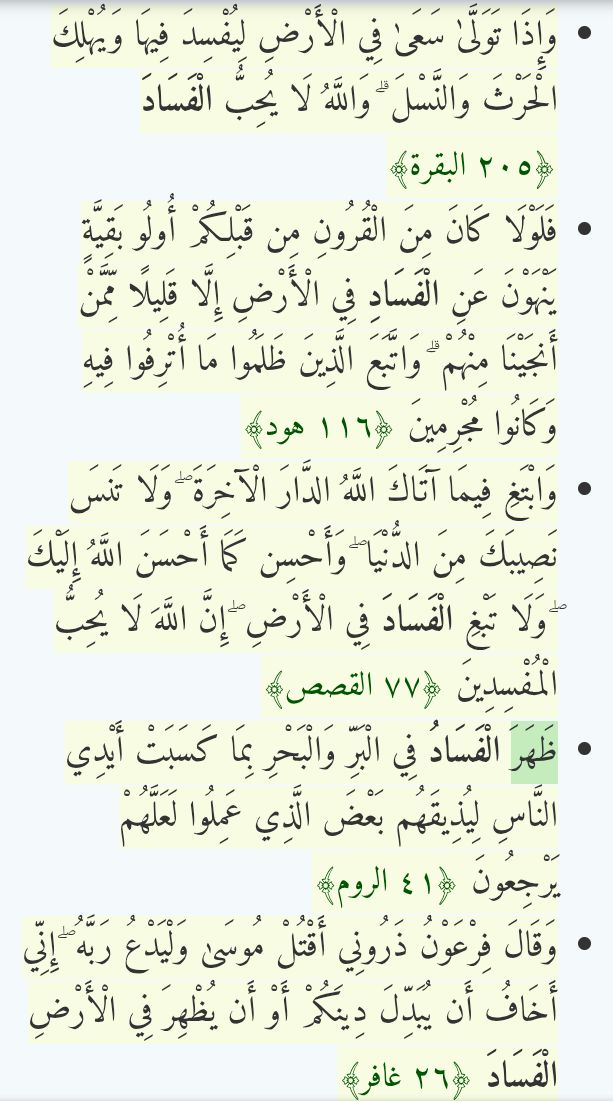 وَإِذَا تَوَلَّىٰ سَعَىٰ فِي الْأَرْضِ لِيُفْسِدَ فِيهَا وَيُهْلِكَ
الْحَرْثَ وَالنَّسْلَ ۗ وَاللَّهُ لَا يُحِبُّ الْفَسَادَ
﴿٢٠٥ البقرة﴾
فَلَوْلَا كَانَ مِنَ الْقُرُونِ مِن قَبْلِكُمْ أُولُو بَقِيَّةٍ
يَنْهَوْنَ عَنِ الْفَسَادِ فِي الْأَرْضِ إِلَّا قَلِيلًا مِّمَّنْ
أَنجَيْنَا مِنْهُمْ ۗ وَاتَّبَعَ الَّذِينَ ظَلَمُوا مَا أُتْرِفُوا فِيهِ
وَكَانُوا مُجْرِمِينَ ﴿١١٦ هود﴾
وَابْتَغِ فِيمَا آتَاكَ اللَّهُ الدَّارَ الْآخِرَةَ ۖ وَلَا تَنسَ
نَصِيبَكَ مِنَ الدُّنْيَا ۖ وَأَحْسِن كَمَا أَحْسَنَ اللَّهُ إِلَيْكَ
ۖ وَلَا تَبْغِ الْفَسَادَ فِي الْأَرْضِ ۖ إِنَّ اللَّهَ لَا يُحِبُّ
الْمُفْسِدِينَ ﴿٧٧ القصص﴾
ظَهَرَ الْفَسَادُ فِي الْبَرِّ وَالْبَحْرِ بِمَا كَسَبَتْ أَيْدِي
النَّاسِ لِيُذِيقَهُم بَعْضَ الَّذِي عَمِلُوا لَعَلَّهُمْ
يَرْجِعُونَ ﴿٤١ الروم﴾
وَقَالَ فِرْعَوْنُ ذَرُونِي أَقْتُلْ مُوسَىٰ وَلْيَدْعُ رَبَّهُ ۖ إِنِّي
أَخَافُ أَن يُبَدِّلَ دِينَكُمْ أَوْ أَن يُظْهِرَ فِي الْأَرْضِ
الْفَسَادَ ﴿٢٦ غافر﴾